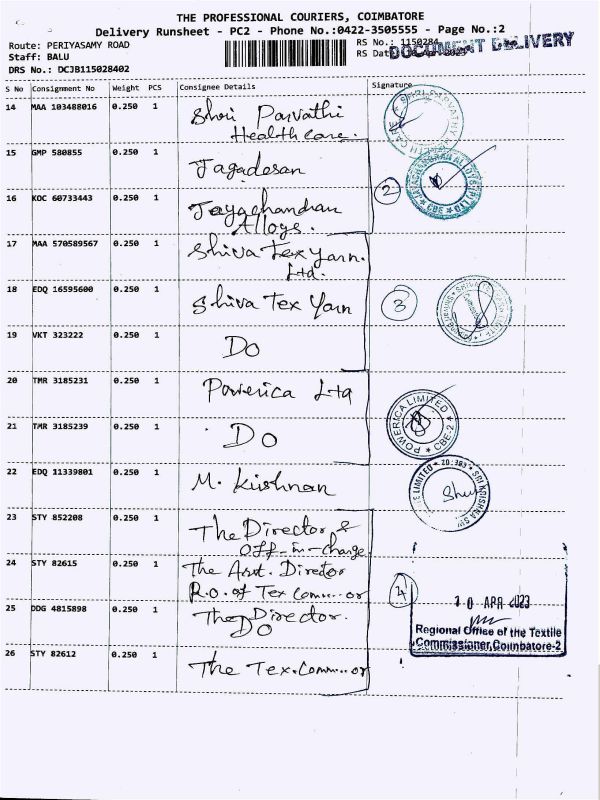 THE PROFESSIONAL COURIERS, COIMBATORE
Delivery Runsheet - PC2 - Phone No.:0422-3505555 - Page No.:2
Route: PERIYASAMY ROAD
RS No.: 1150284
Staff: BALU
RS Dat
DOCUMENT DELIVERY
DRS No.: DCJB115028402
S No Consignment No Weight PCS Consignee Details Signature
14 MAA 103488016 0.250 1 Shri Parvathi
Health Care.
15 GMP 580855 0.250 1 Jagadesan
16 KOC 60733443 0.250 1 Jayachandran
Alloys.
2
17 MAA 570589567 0.250 1 Shiva Tex Yarn.
Ltd.
18 EDQ 16595600 0.250 1 Shiva Tex Yarn
3
19 VKT 323222 0.250 1 Do
20 TMR 3185231 0.250 1 Powerica Ltd
21 TMR 3185239 0.250 1 Do
POWERICA LIMITED CBE-2
22 EDQ 11339801 0.250 1 M. Krishnan
23 STY 852208 0.250 1 The Director &
Off-in-charge
24 STY 82615 0.250 1 The Asst. Director
R.O. of Tex Comm..or
4
25 DDG 4815898 0.250 1 The Director.
DO
10 APR 2023
Regional Office of the Textile
Commissioner, Coimbatore-2
26 STY 82612 0.250 1 The Tex.Comm..or